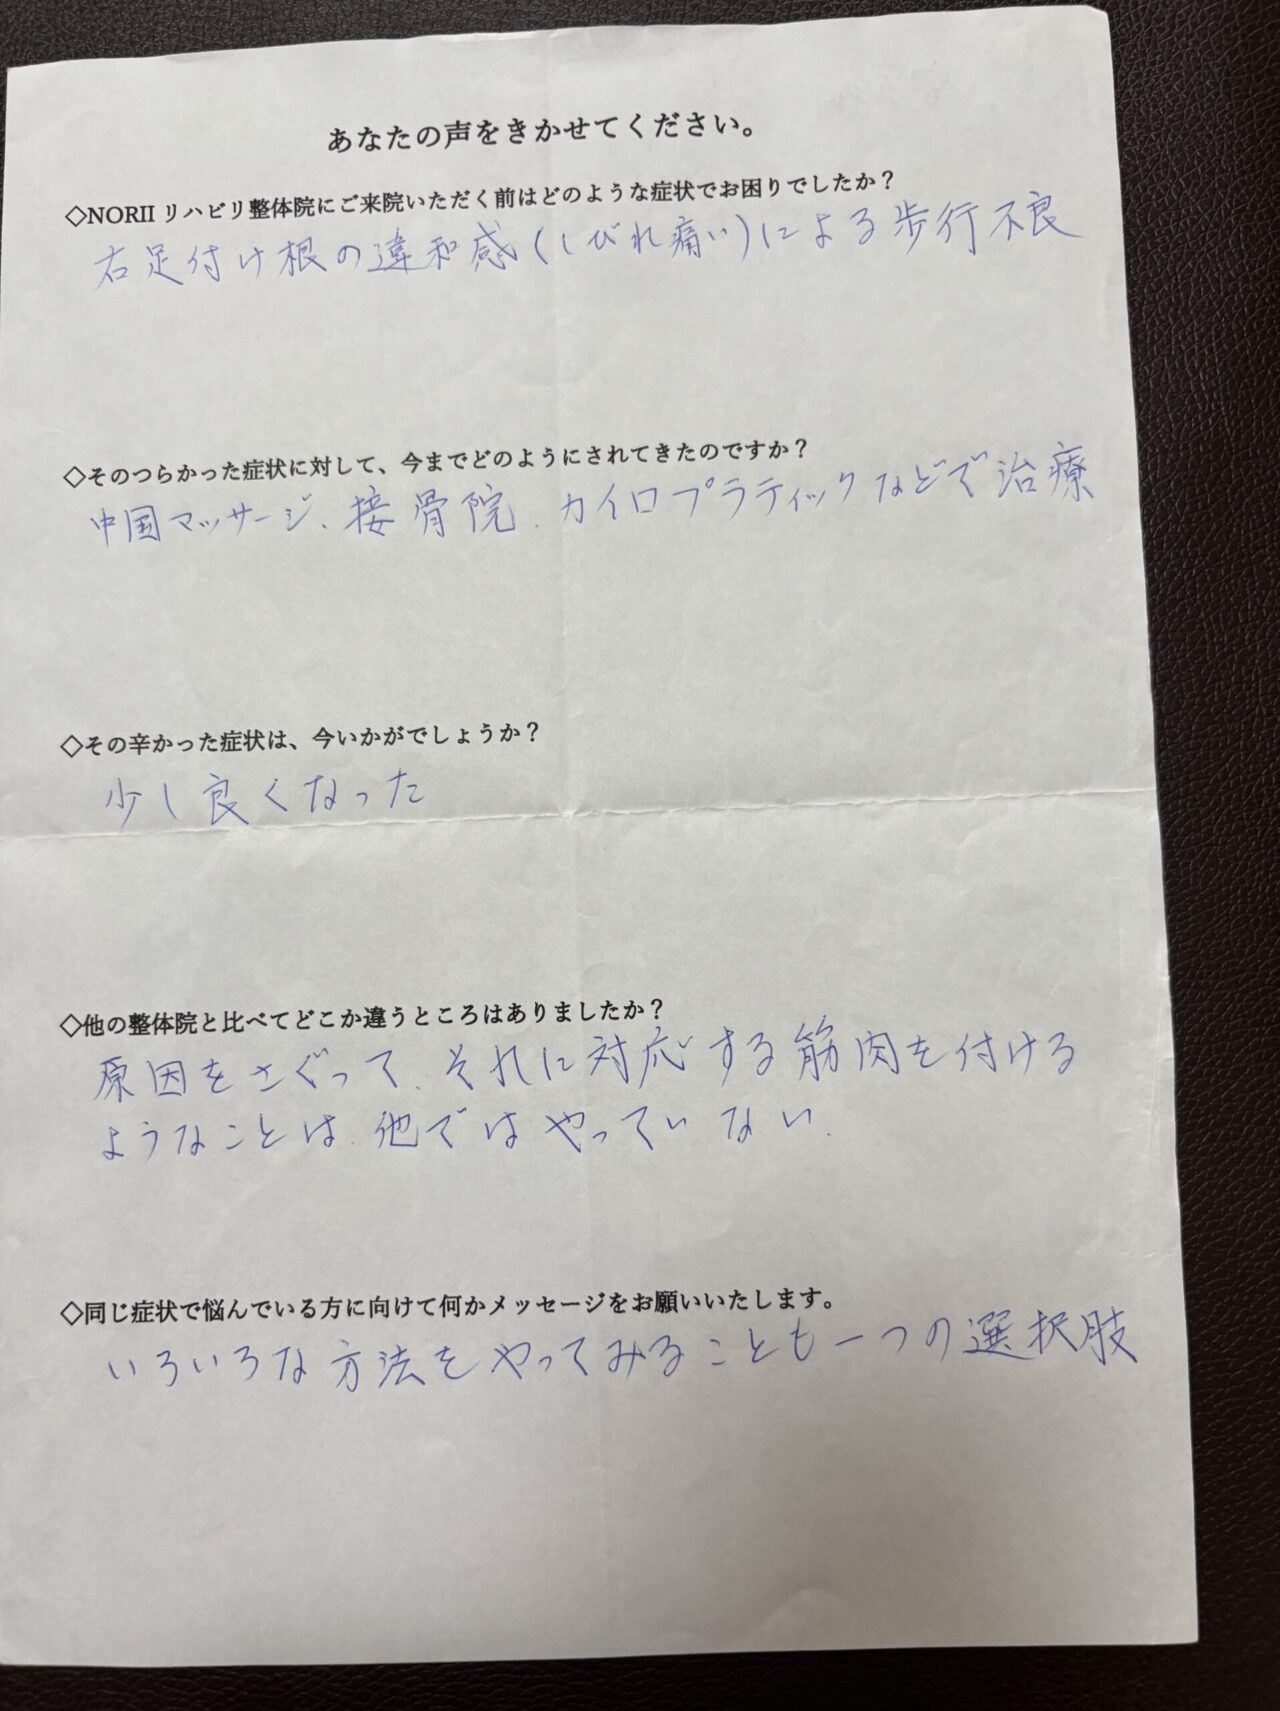 あなたの声をきかせてください。
◇NORII リハビリ整体院にご来院いただく前はどのような症状でお困りでしたか？
右足付け根の違和感(しびれ痛い)による歩行不良
◇そのつらかった症状に対して、今までどのようにされてきたのですか？
中国マッサージ、接骨院、カイロプラティックなどで治療
◇その辛かった症状は、今いかがでしょうか？
少し良くなった
◇他の整体院と比べてどこか違うところはありましたか？
原因をさぐって、それに対応する筋肉を付ける
ようなことは、他ではやっていない、
◇同じ症状で悩んでいる方に向けて何かメッセージをお願いいたします。
いろいろな方法をやってみることも一つの選択肢